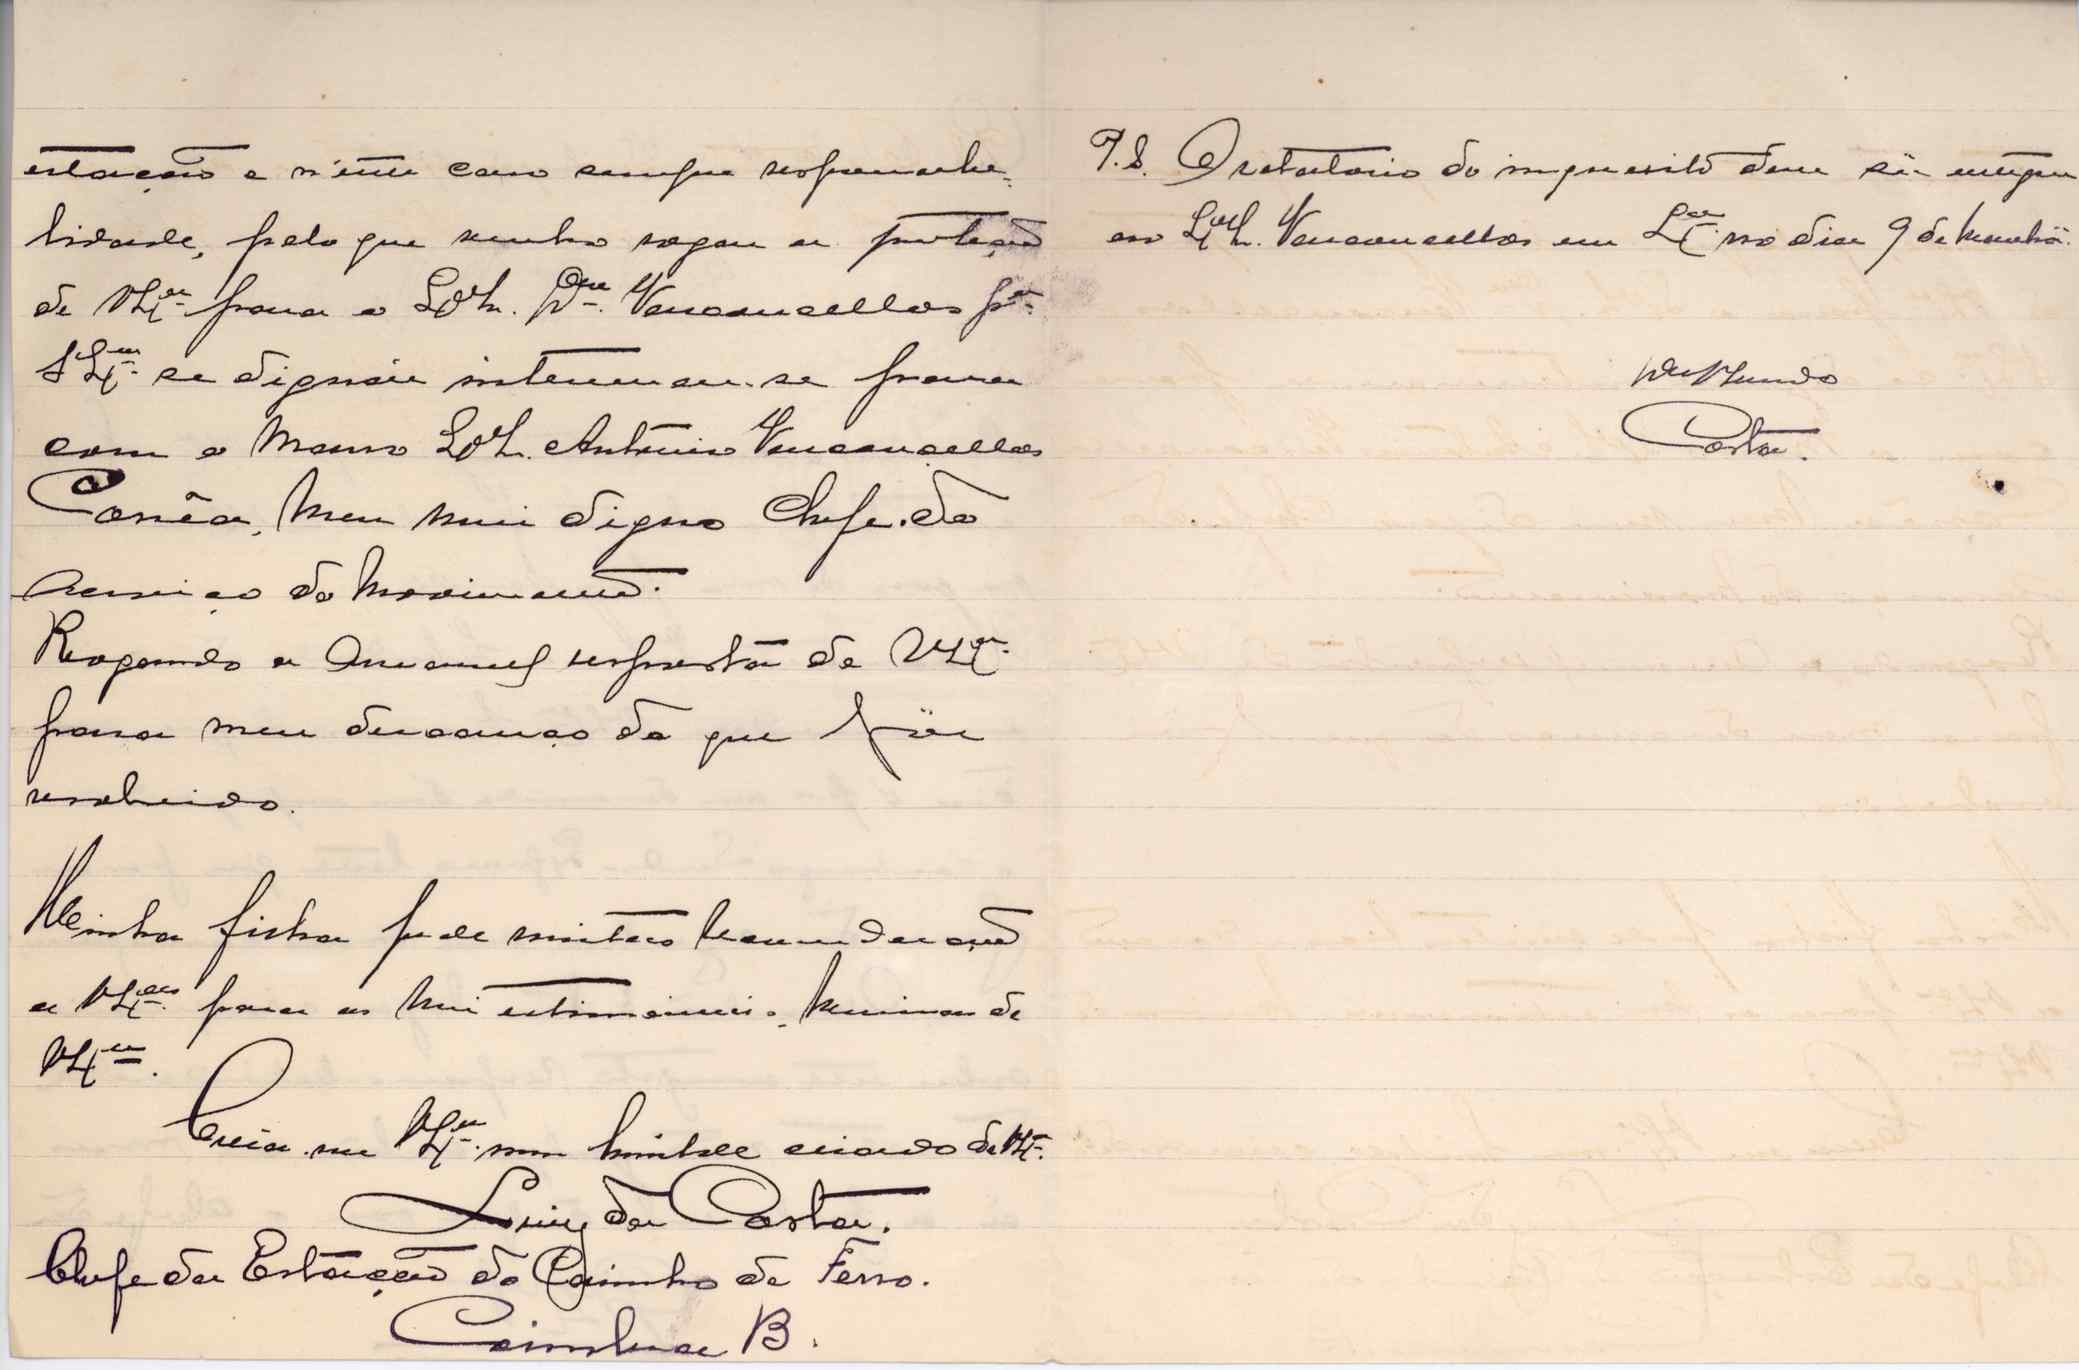 estação e n'este caso sempre responsabe-
lidade, pelo que venho rogar a proteção
de VEx.ª para o Ex.mo Sr. Vasconcellos p.ª
S.Ex.ª se dignar interessar-se para
com o Mesmo Ex.mo Sr. António Vasconcellos
Corrêa, Meu Mui digno Chefe do
serviço do Movimento.
Rogando a amavel resposta de VEx.ª
para meu descanço do que fôr
resolvido.
Minha filha pede muitas recomendações
a VEx.as para as Mui estimaveis Meninas de
VEx.ª.
Creia-me VEx.ª um humilde criado de VEx.ª
Luiz da Costa.
Chefe da Estação do Caminho de Ferro.
Coimbra B.
P.S. O relatorio do inquerito deve sêr entregue
ao Vasconcellos em no dia 9 de Manhã.
Costa.